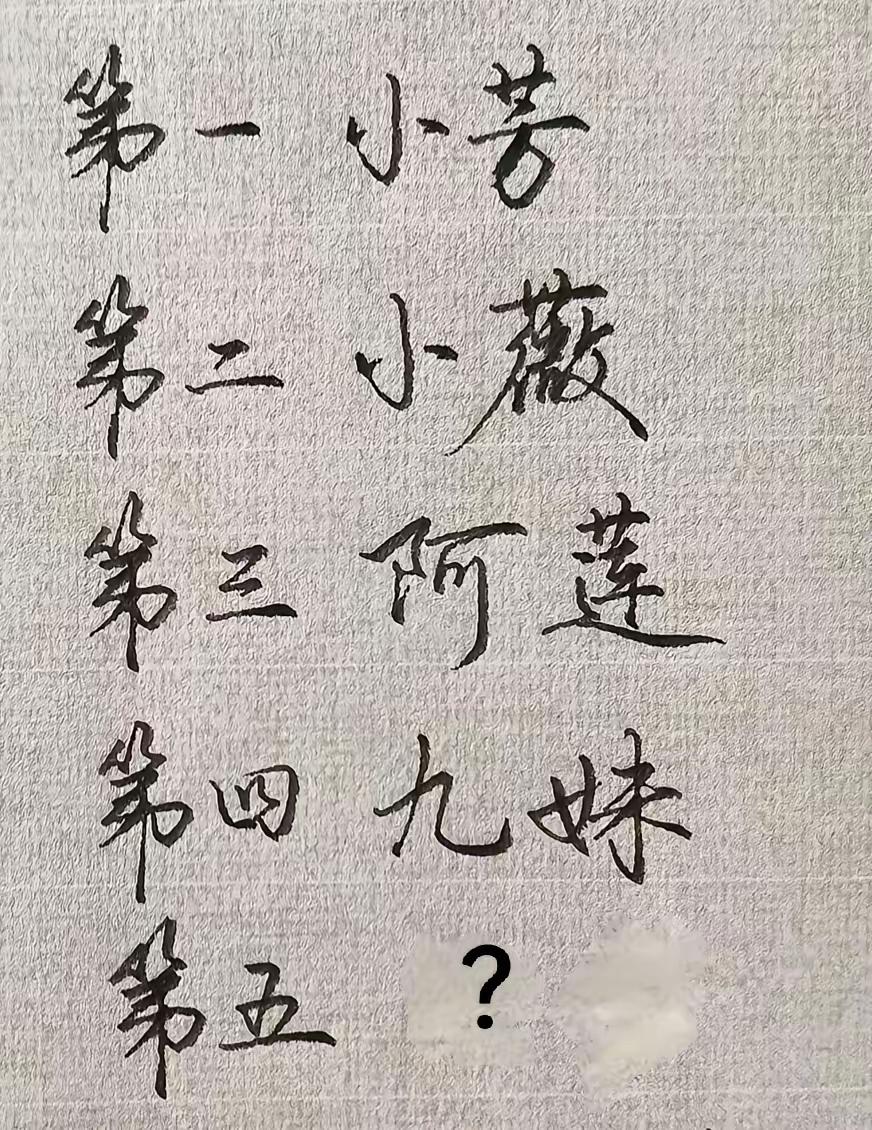 第一 小芳
第二 小薇
第三 阿莲
第四 九妹
第五 ?